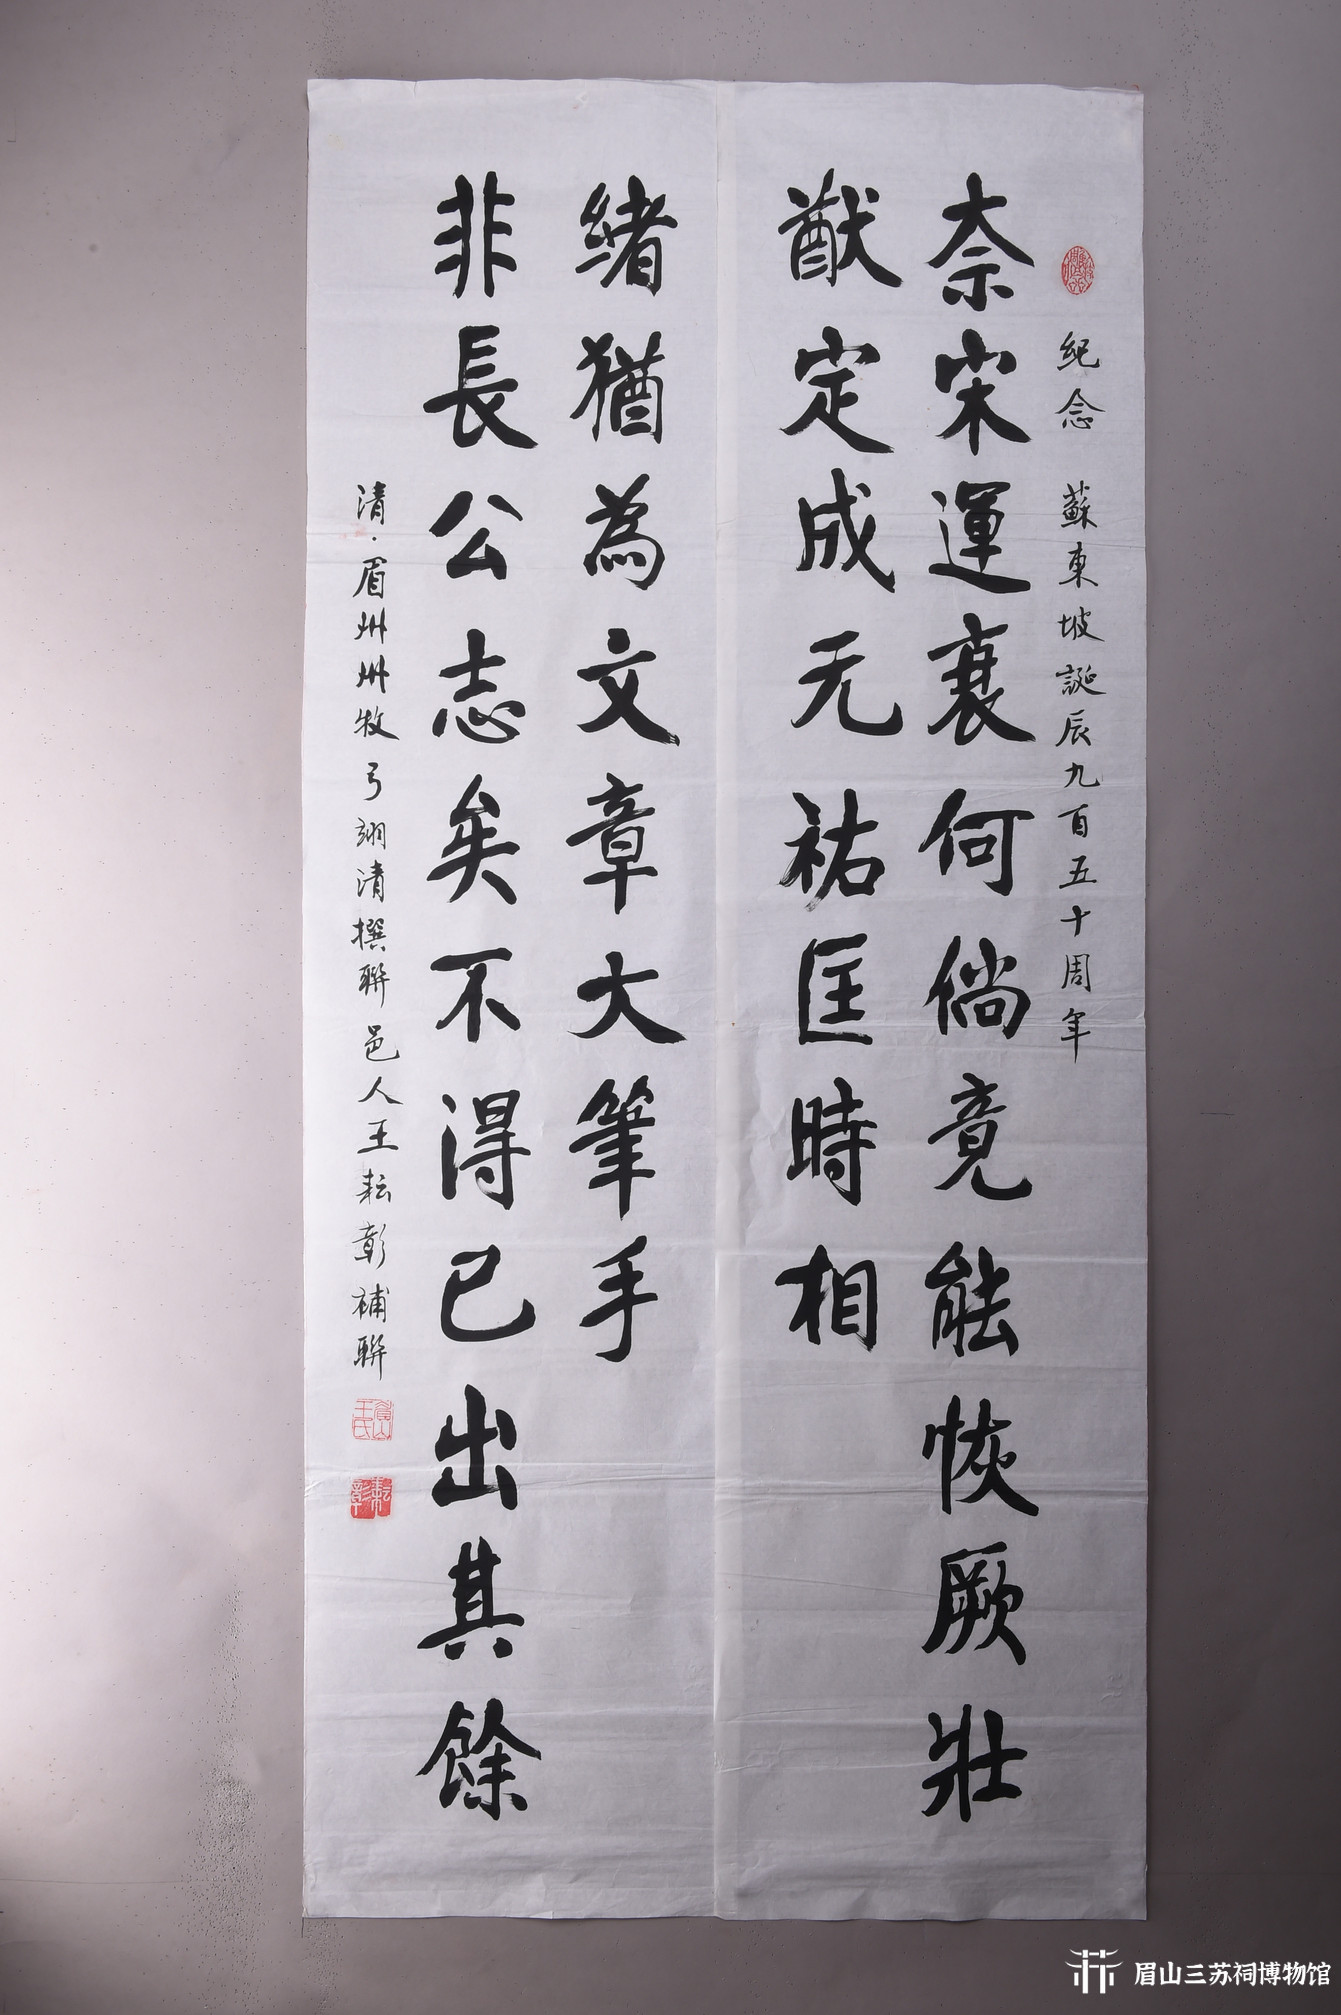 紀念 蘇東坡誕辰九百五十周年
奈宋運衰何倘竟能恢厥壯
猷定成元祐匡時相
非長公志矣不得已出其餘
緒猶為文章大筆手
清·眉州州牧弓翊清撰聯邑人王耘彰補聯
王氏
耘彰
眉山三苏祠博物馆